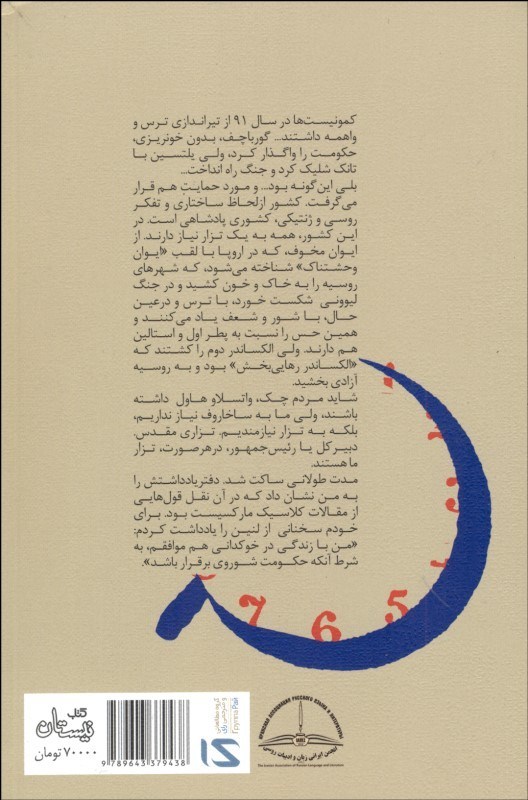 کمونیست‌ها در سال ۹۱ از تیراندازی ترس و
واهمه داشتند... گورباچف، بدون خونریزی،
حکومت را واگذار کرد، ولی یلتسین با
تانک شلیک کرد و جنگ راه انداخت...
بلی این‌گونه بود... و مورد حمایت هم قرار
می‌گرفت. کشور ازلحاظ ساختاری و تفکر
روسی و ژنتیکی، کشوری پادشاهی است. در
این کشور، همه به یک تزار نیاز دارند. از
ایوان مخوف، که در اروپا با لقب «ایوان
وحشتناک» شناخته می‌شود، که شهرهای
روسیه را به خاک و خون کشید و در جنگ
لیوونی شکست خورد، با ترس و درعین
حال، با شور و شعف یاد می‌کنند و
همین حس را نسبت به پطر اول و استالین
هم دارند. ولی الکساندر دوم را کشتند که
«الکساندر رهایی‌بخش» بود و به روسیه
آزادی بخشید.
شاید مردم چک، واتسلاو هاول داشته
باشند، ولی ما به ساخاروف نیاز نداریم،
بلکه به تزار نیازمندیم. تزاری مقدس.
دبیرکل یا رئیس‌جمهور، درهرصورت، تزار
ما هستند.
مدت طولانی ساکت شد. دفتریادداشتش را
به من نشان داد که در آن نقل قول‌هایی
از مقالات کلاسیک مارکسیست بود. برای
خودم سخنانی از لنین را یادداشت کردم:
«من با زندگی در خوکدانی هم موافقم، به
شرط آنکه حکومت شوروی برقرار باشد».
7 6 5
کتاب
نیستان
۷۰۰۰۰ تومان
9 789643 379438
انجمن ایرانی زبان و ادبیات روسی
The Iranian Association of Russian Language and Literature